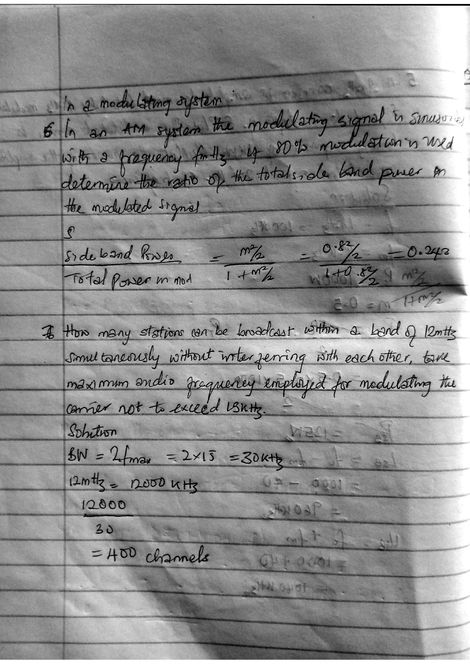 in a modulating system
6 In an AM system the modulating signal is sinusoidal
with a frequency fmHz if 80% modulation is used
determine the ratio of the total side band power in
the modulated signal
S
Side band Power / Total power in mod = m²/2 / 1 + m²/2 = 0.8²/2 / 1+0.8²/2 = 0.242
7 How many stations can be broadcast within a band of 12mHz
simultaneously without interferring with each other, take
maximum audio frequency employed for modulating the
carrier not to exceed 15KHz.
Solution
BW = 2fmax = 2×15 = 30KHz
12mHz = 12000 KHz
12000
30
= 400 channels